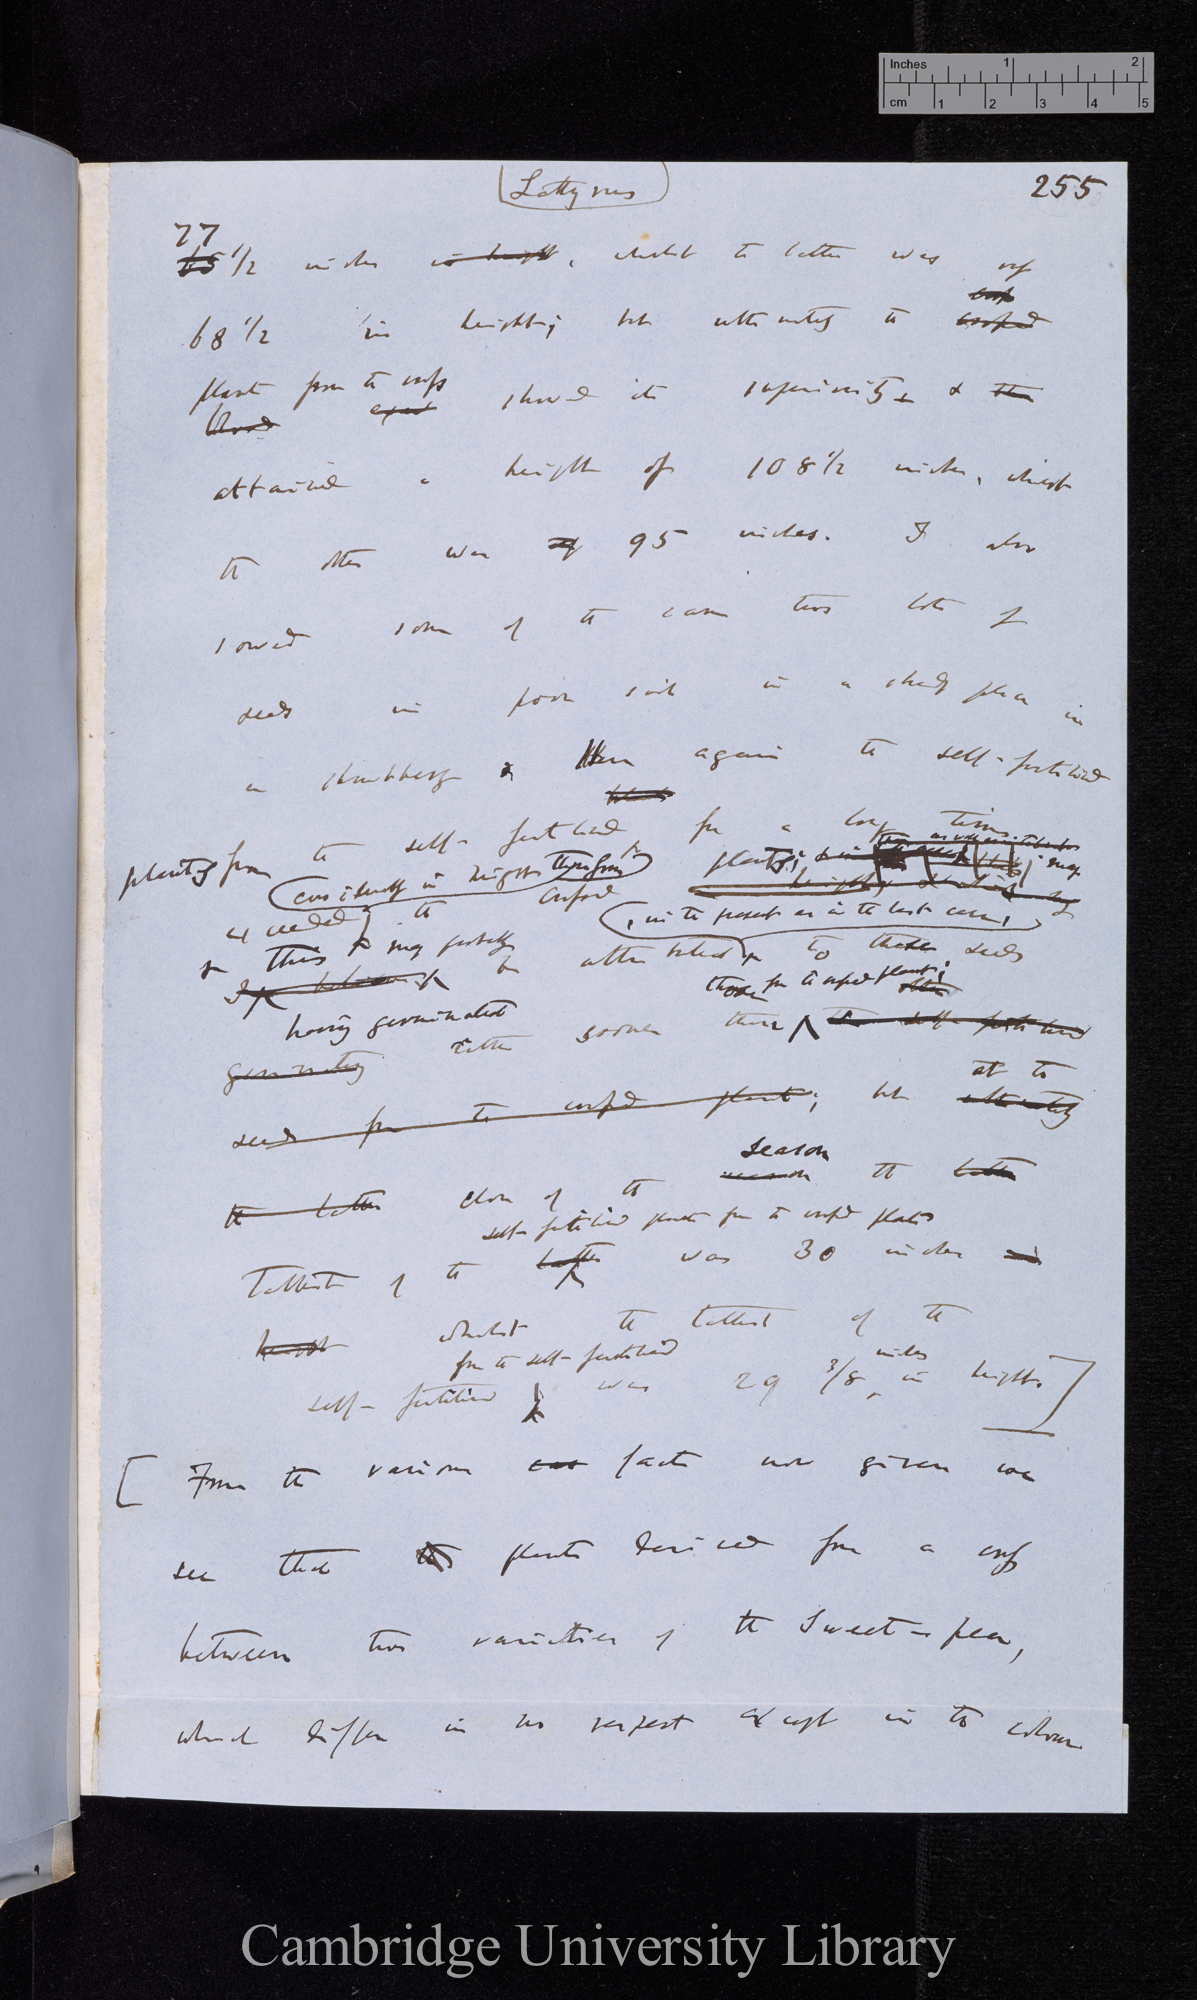 Inches 1 2
cm 1 2 3 4 5
Lathyrus
255
77
65 1/2 inches in height, whilst the latter was only
68 1/2 in height; but ultimately the crossed
plant from the cross showed its superiority & the
attained a height of 108 1/2 inches, whilst
the other was 95 inches. I also
sowed some of the same two lots of
seeds in poor soil in a shady place in
a shrubbery Here again the self-fertilised
plants from the self-fertilised for a long time
considerably in height therefrom
plants;
exceeded the crossed
, in the present as in the last case,
& this may probably be attributed to these seeds
those from the crossed plants;
having germinated
germinating rather sooner than the self-fertilised
at the
seeds from the crossed plant; but ultimately
season
the latter close of the season the
self-fertilised plants from the crossed plants
Tallest of the was 30 inches in
height whilst the tallest of the
from the self-fertilised inches
self-fertilised was 29 3/8 in height.]
[From the various facts now given we
see that the plants derived from a cross
between two varieties of the Sweet-pea,
which differ in no respect except in the colour
Cambridge University Library